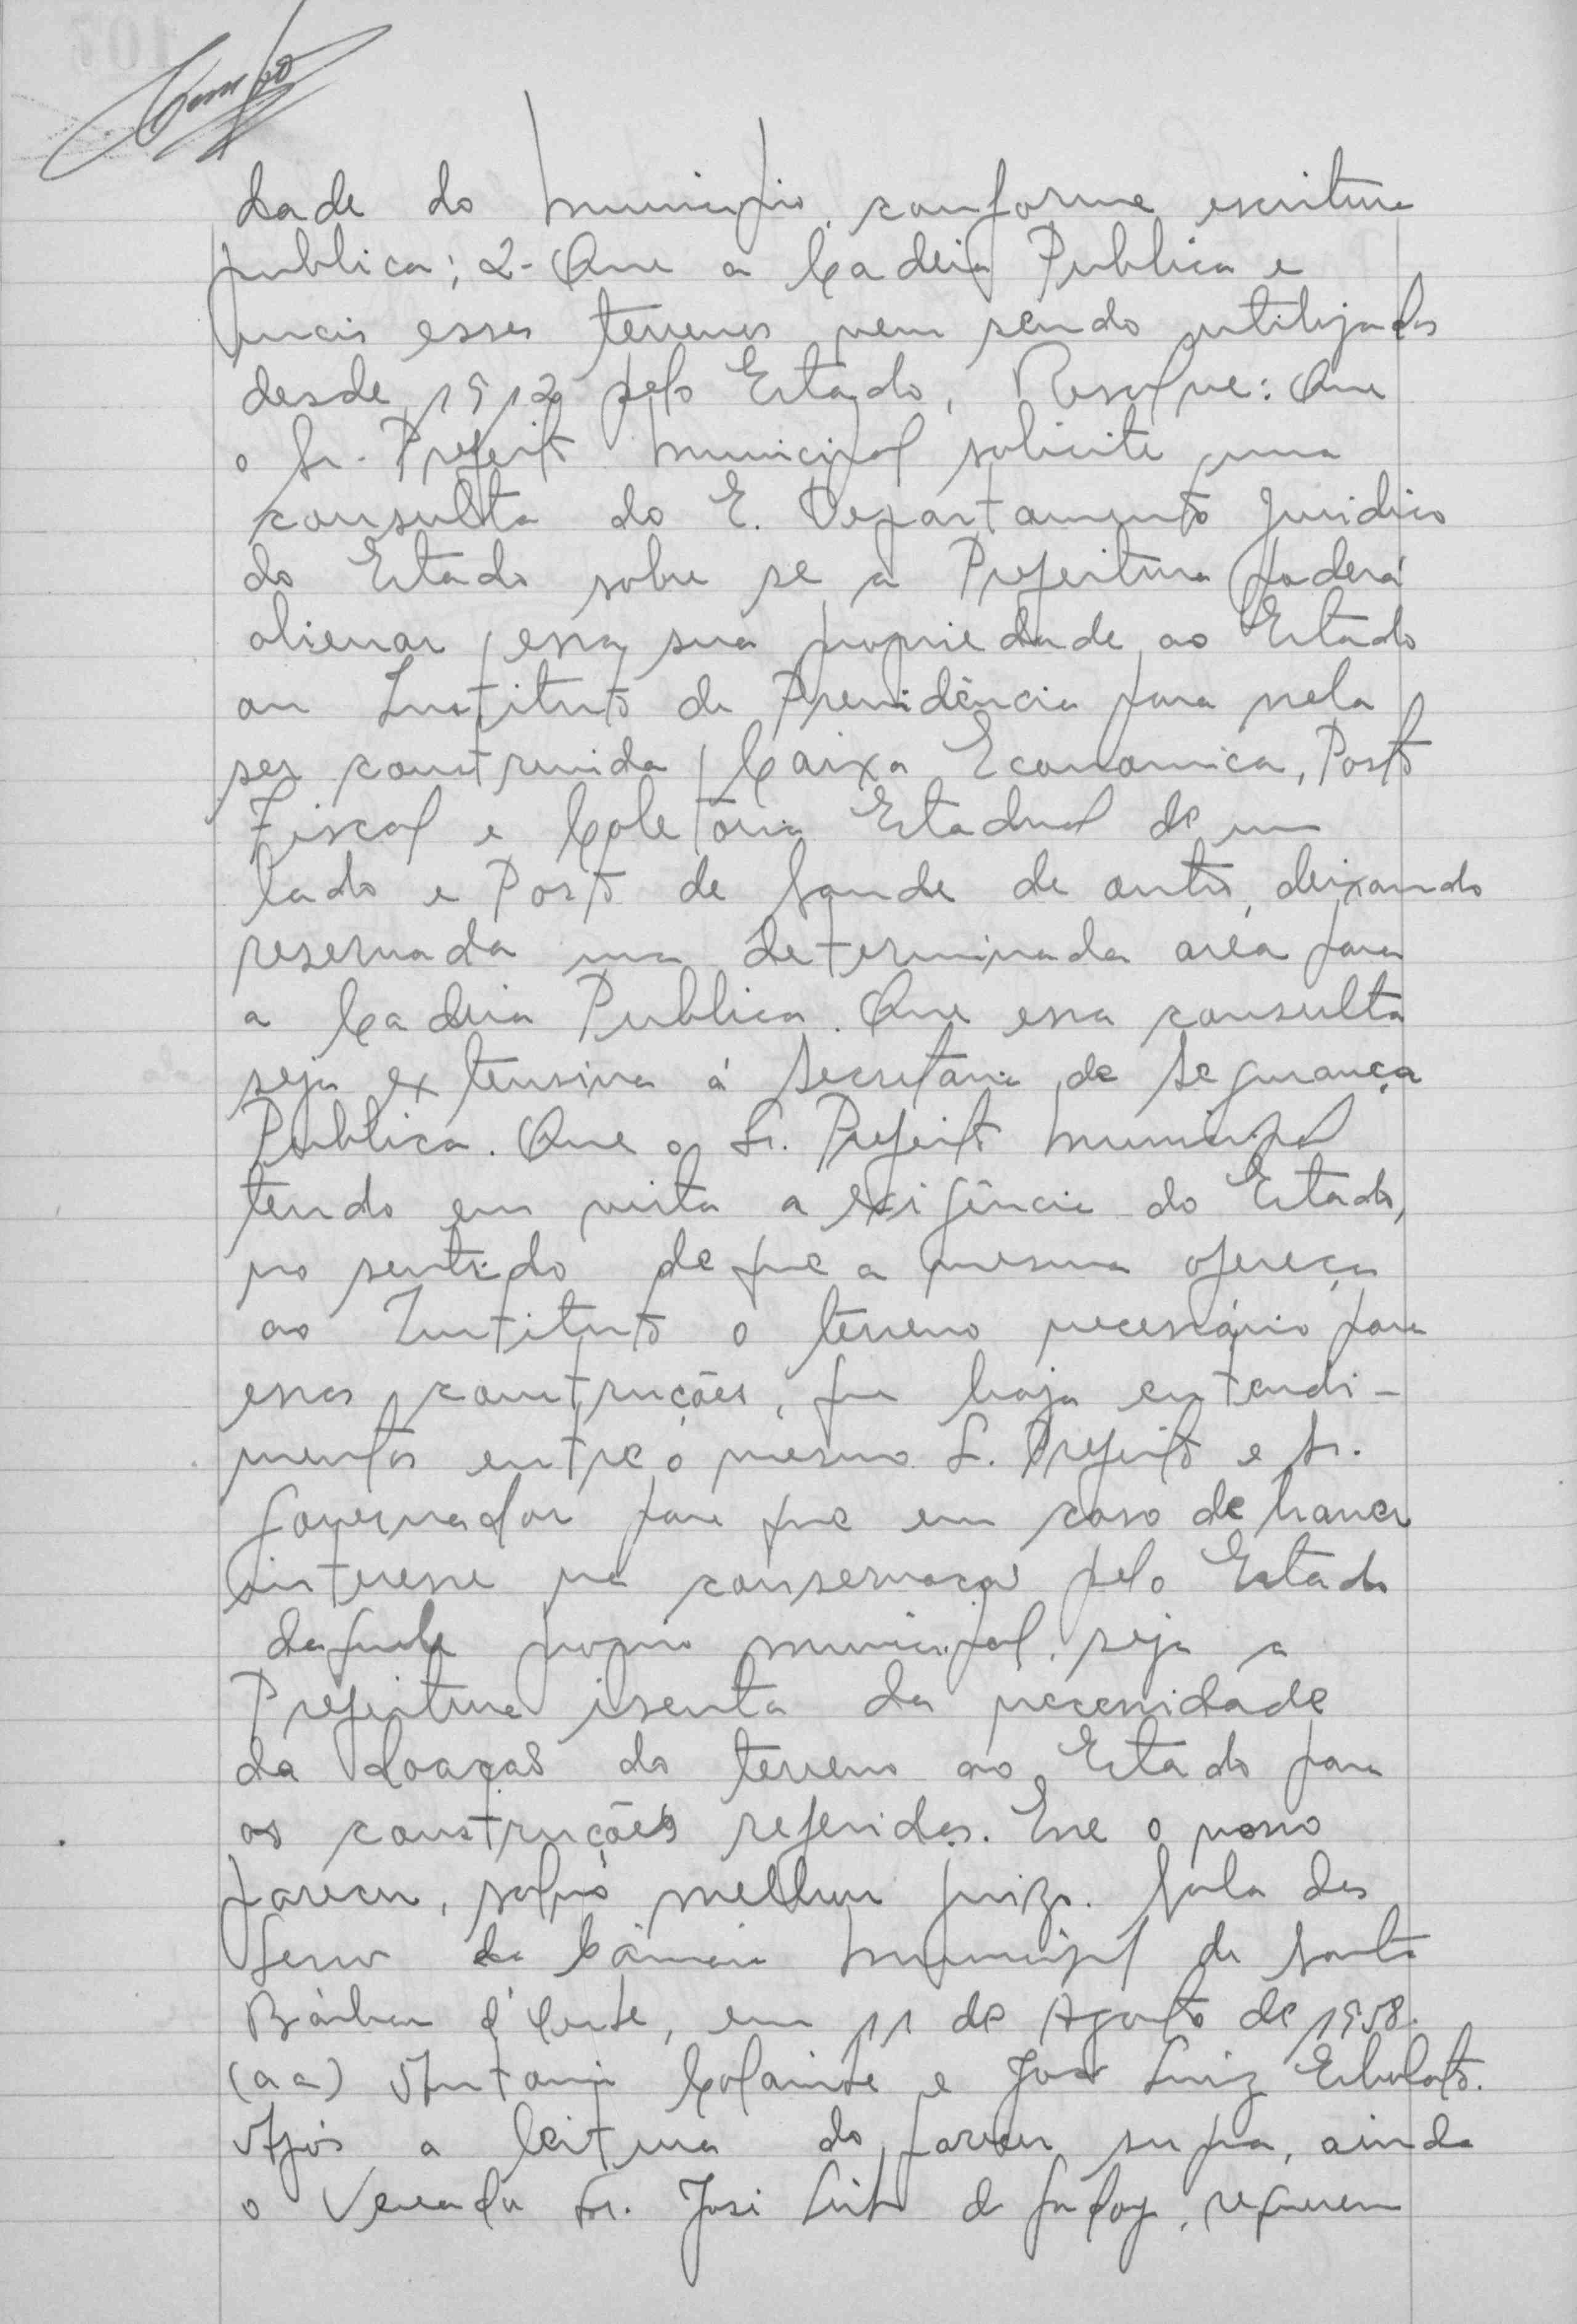 dade do Municipio, conforme escritura
publica; 2- Que a Cadeia Publica e
mais esses terrenos vem sendo utilizados
desde 1912 pelo Estado, Resolve: Que
o Sr. Prefeito Municipal solicite uma
consulta do E. Departamento Juridico
do Estado sobre se a Prefeitura poderá
alienar essa sua propriedade ao Estado
ou Instituto de Previdência para nela
ser construida Caixa Economica, Posto
Fiscal e Coletôria Estadual de um
lado e Posto de Saude de outro, deixando
reservada uma determinada area para
a Cadeia Publica. Que essa consulta
seja extensiva á Secretaria de Segurança
Publica. Que o Sr. Prefeito Municipal
tendo em vista a exigência do Estado,
no sentido de que a mesma ofereça
ao Instituto o terreno necessário para
essas construções, que haja entendi-
mentos entre o mesmo S. Prefeito e Sr.
Governador para que em caso de haver
interesse na conservação pelo Estado
daquele proprio municipal, seja a
Prefeitura isenta da necessidade
da doação do terreno ao Estado para
as construções referidas. Esse o nosso
parecer, salvo melhor juizo. Sala das
Sessões da Câmara Municipal de Santa
Bárbara d'Oeste, em 11 de Agosto de 1958.
(aa) Antonio e José Luiz
Após a leitura do parecer supra, ainda
o Vereador Sr. José de Godoy, requereu